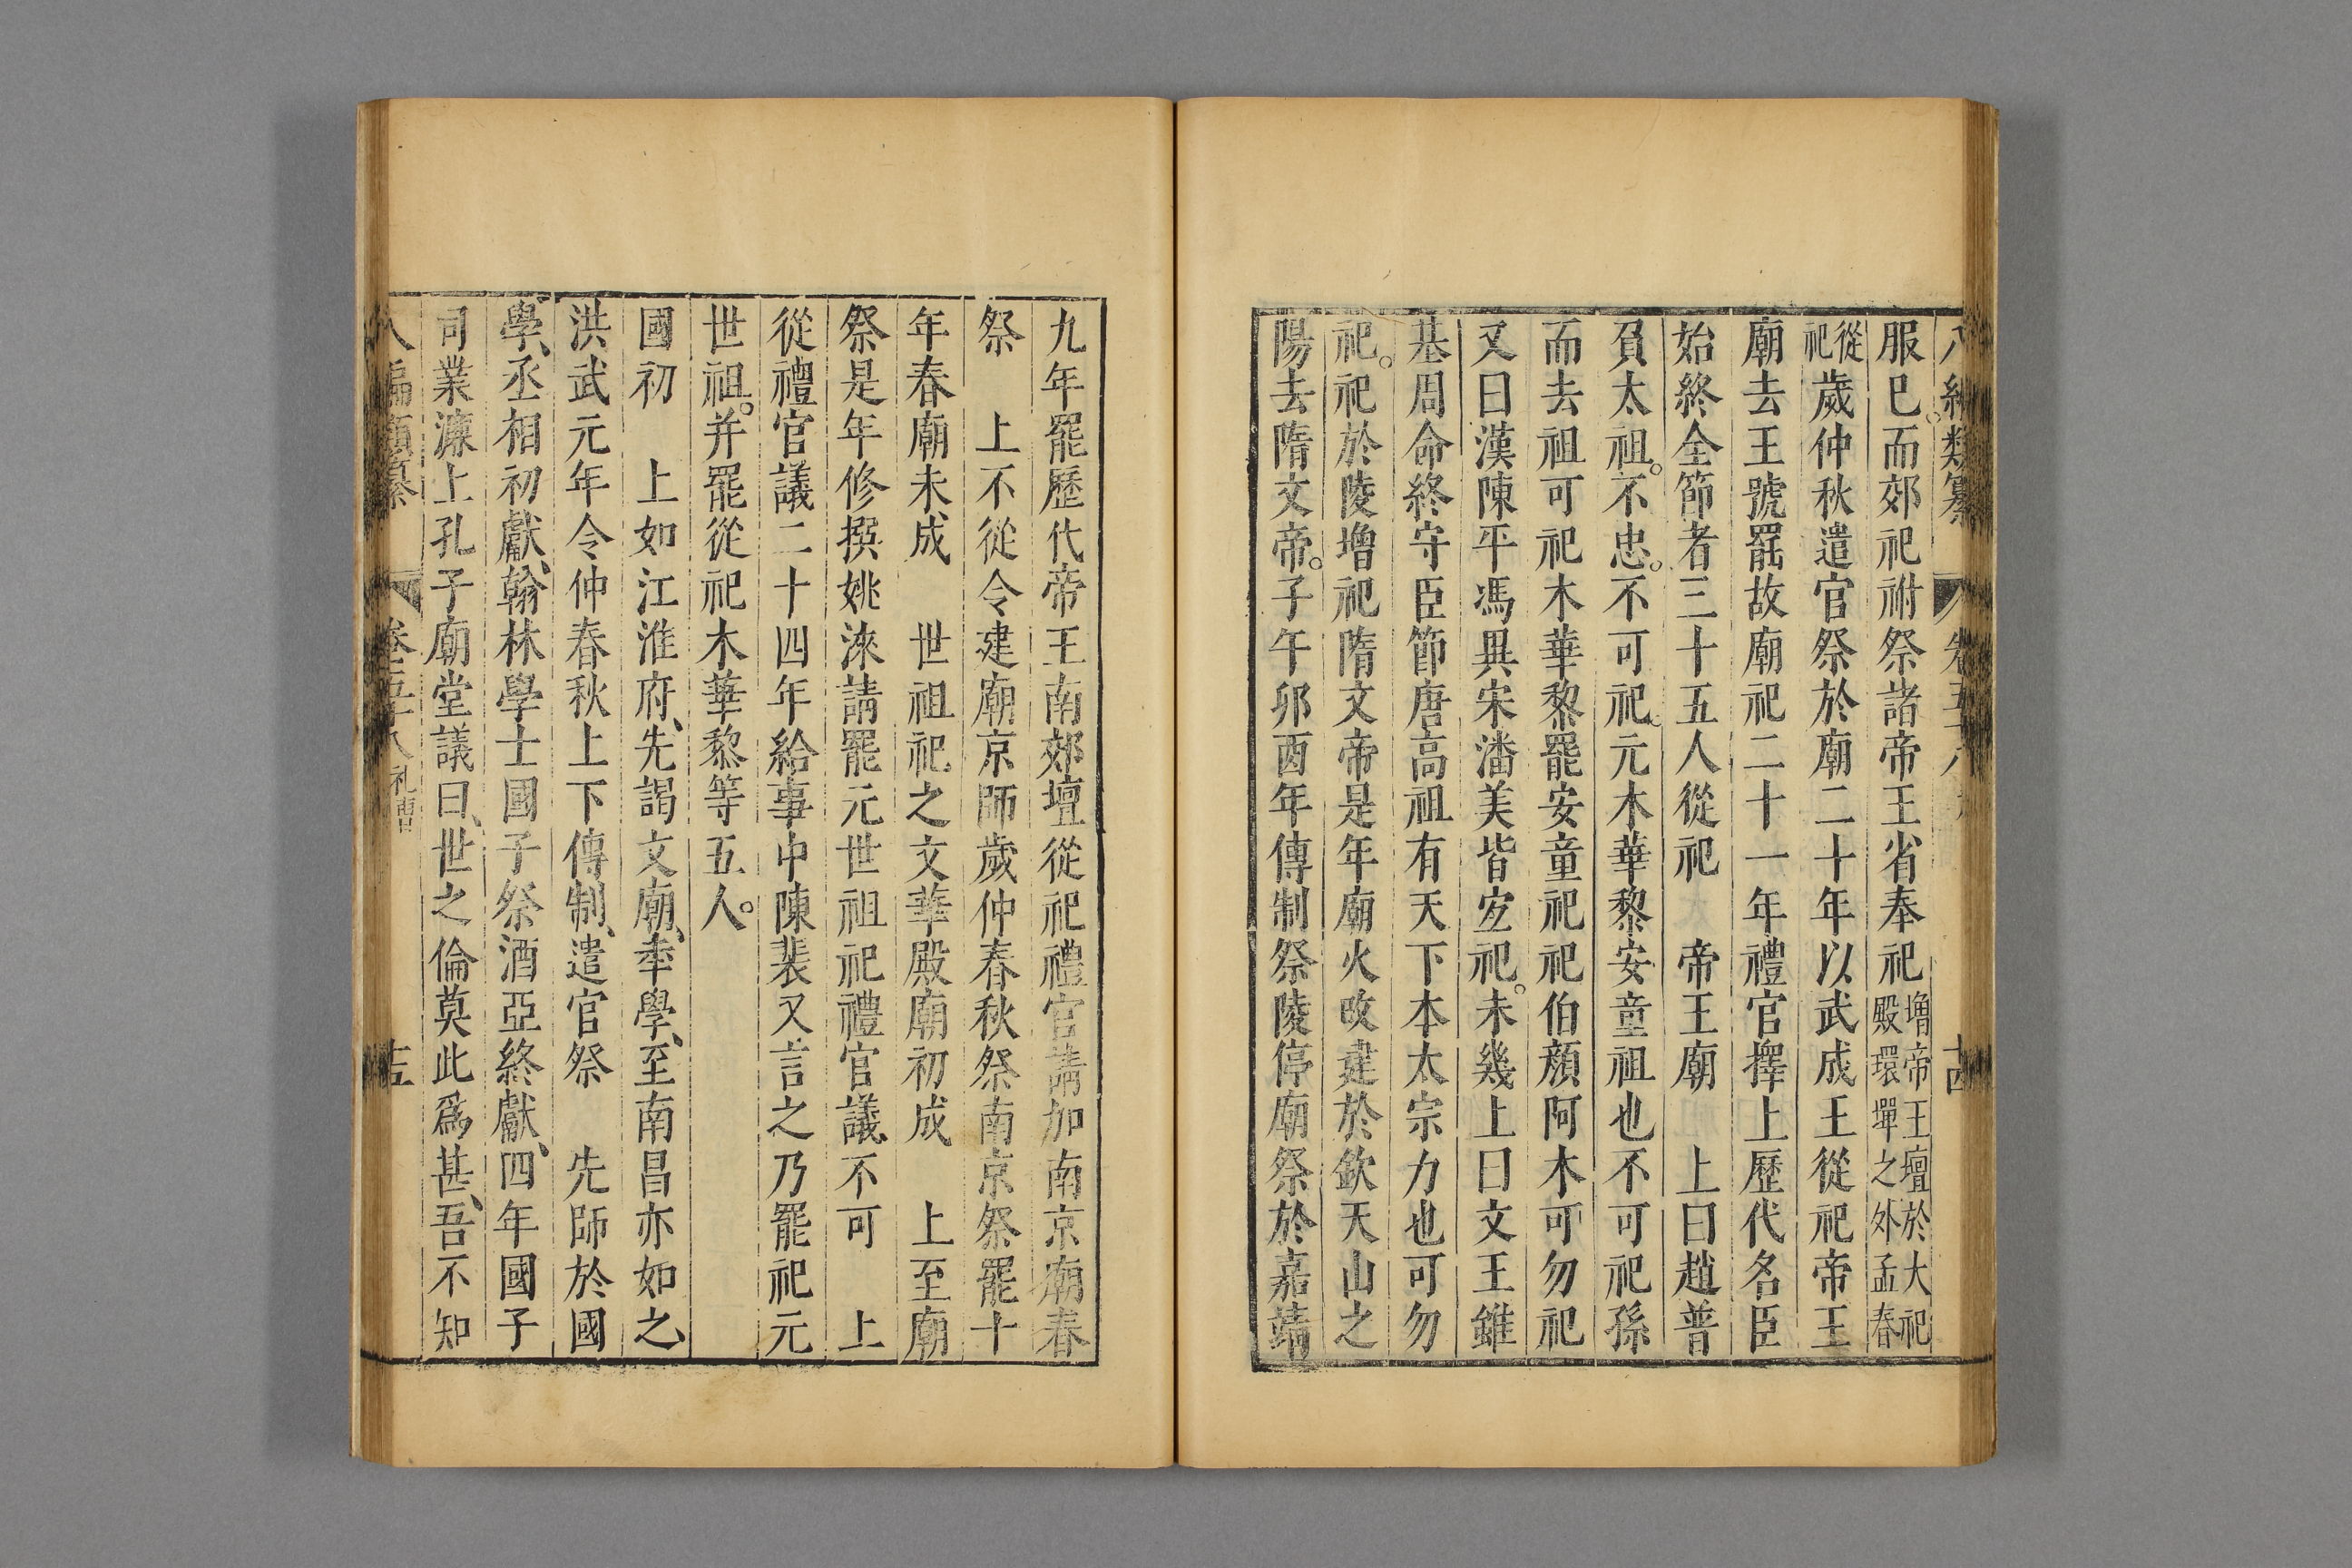 八編類纂 卷五十八 十四
服巳。而郊祀祔祭諸帝王省奉祀增帝王壇於大祀殿環墠之外孟春
從祀歲仲秋遣官祭於廟二十年以武成王從祀帝王
廟去王號罷故廟祀二十一年禮官擇上歷代名臣
始終全節者三十五人從祀 帝王廟 上曰趙普
負太祖。不忠。不可祀。元木華黎安童祖也不可祀孫
而去祖可祀木華黎罷安童祀祀伯顏阿木可勿祀
又曰漢陳平馮異宋潘美皆宜祀。未幾上曰文王雖
基周命終守臣節唐高祖有天下本太宗力也可勿
祀。祀於陵增祀隋文帝是年廟火改建於欽天山之
陽去隋文帝。子午卯酉年傳制祭陵停廟祭於嘉靖
九年罷歷代帝王南郊壇從祀禮官請加南京廟春
祭 上不從令建廟京師歲仲春秋祭南京祭罷十
年春廟未成 世祖祀之文華殿廟初成 上至廟
祭是年修撰姚淶請罷元世祖祀禮官議不可 上
從禮官議二十四年給事中陳棐又言之乃罷祀元
世祖。并罷從祀木華黎等五人。
國初 上如江淮府、先謁文廟、奉學、至南昌亦如之
洪武元年令仲春秋上下傳制、遣官祭 先師於國
學、丞相初獻、翰林學士國子祭酒亞終獻、四年國子
司業濂上孔子廟堂議曰、世之倫莫此爲甚、吾不知
八編類纂 卷五十八 礼曹 十五